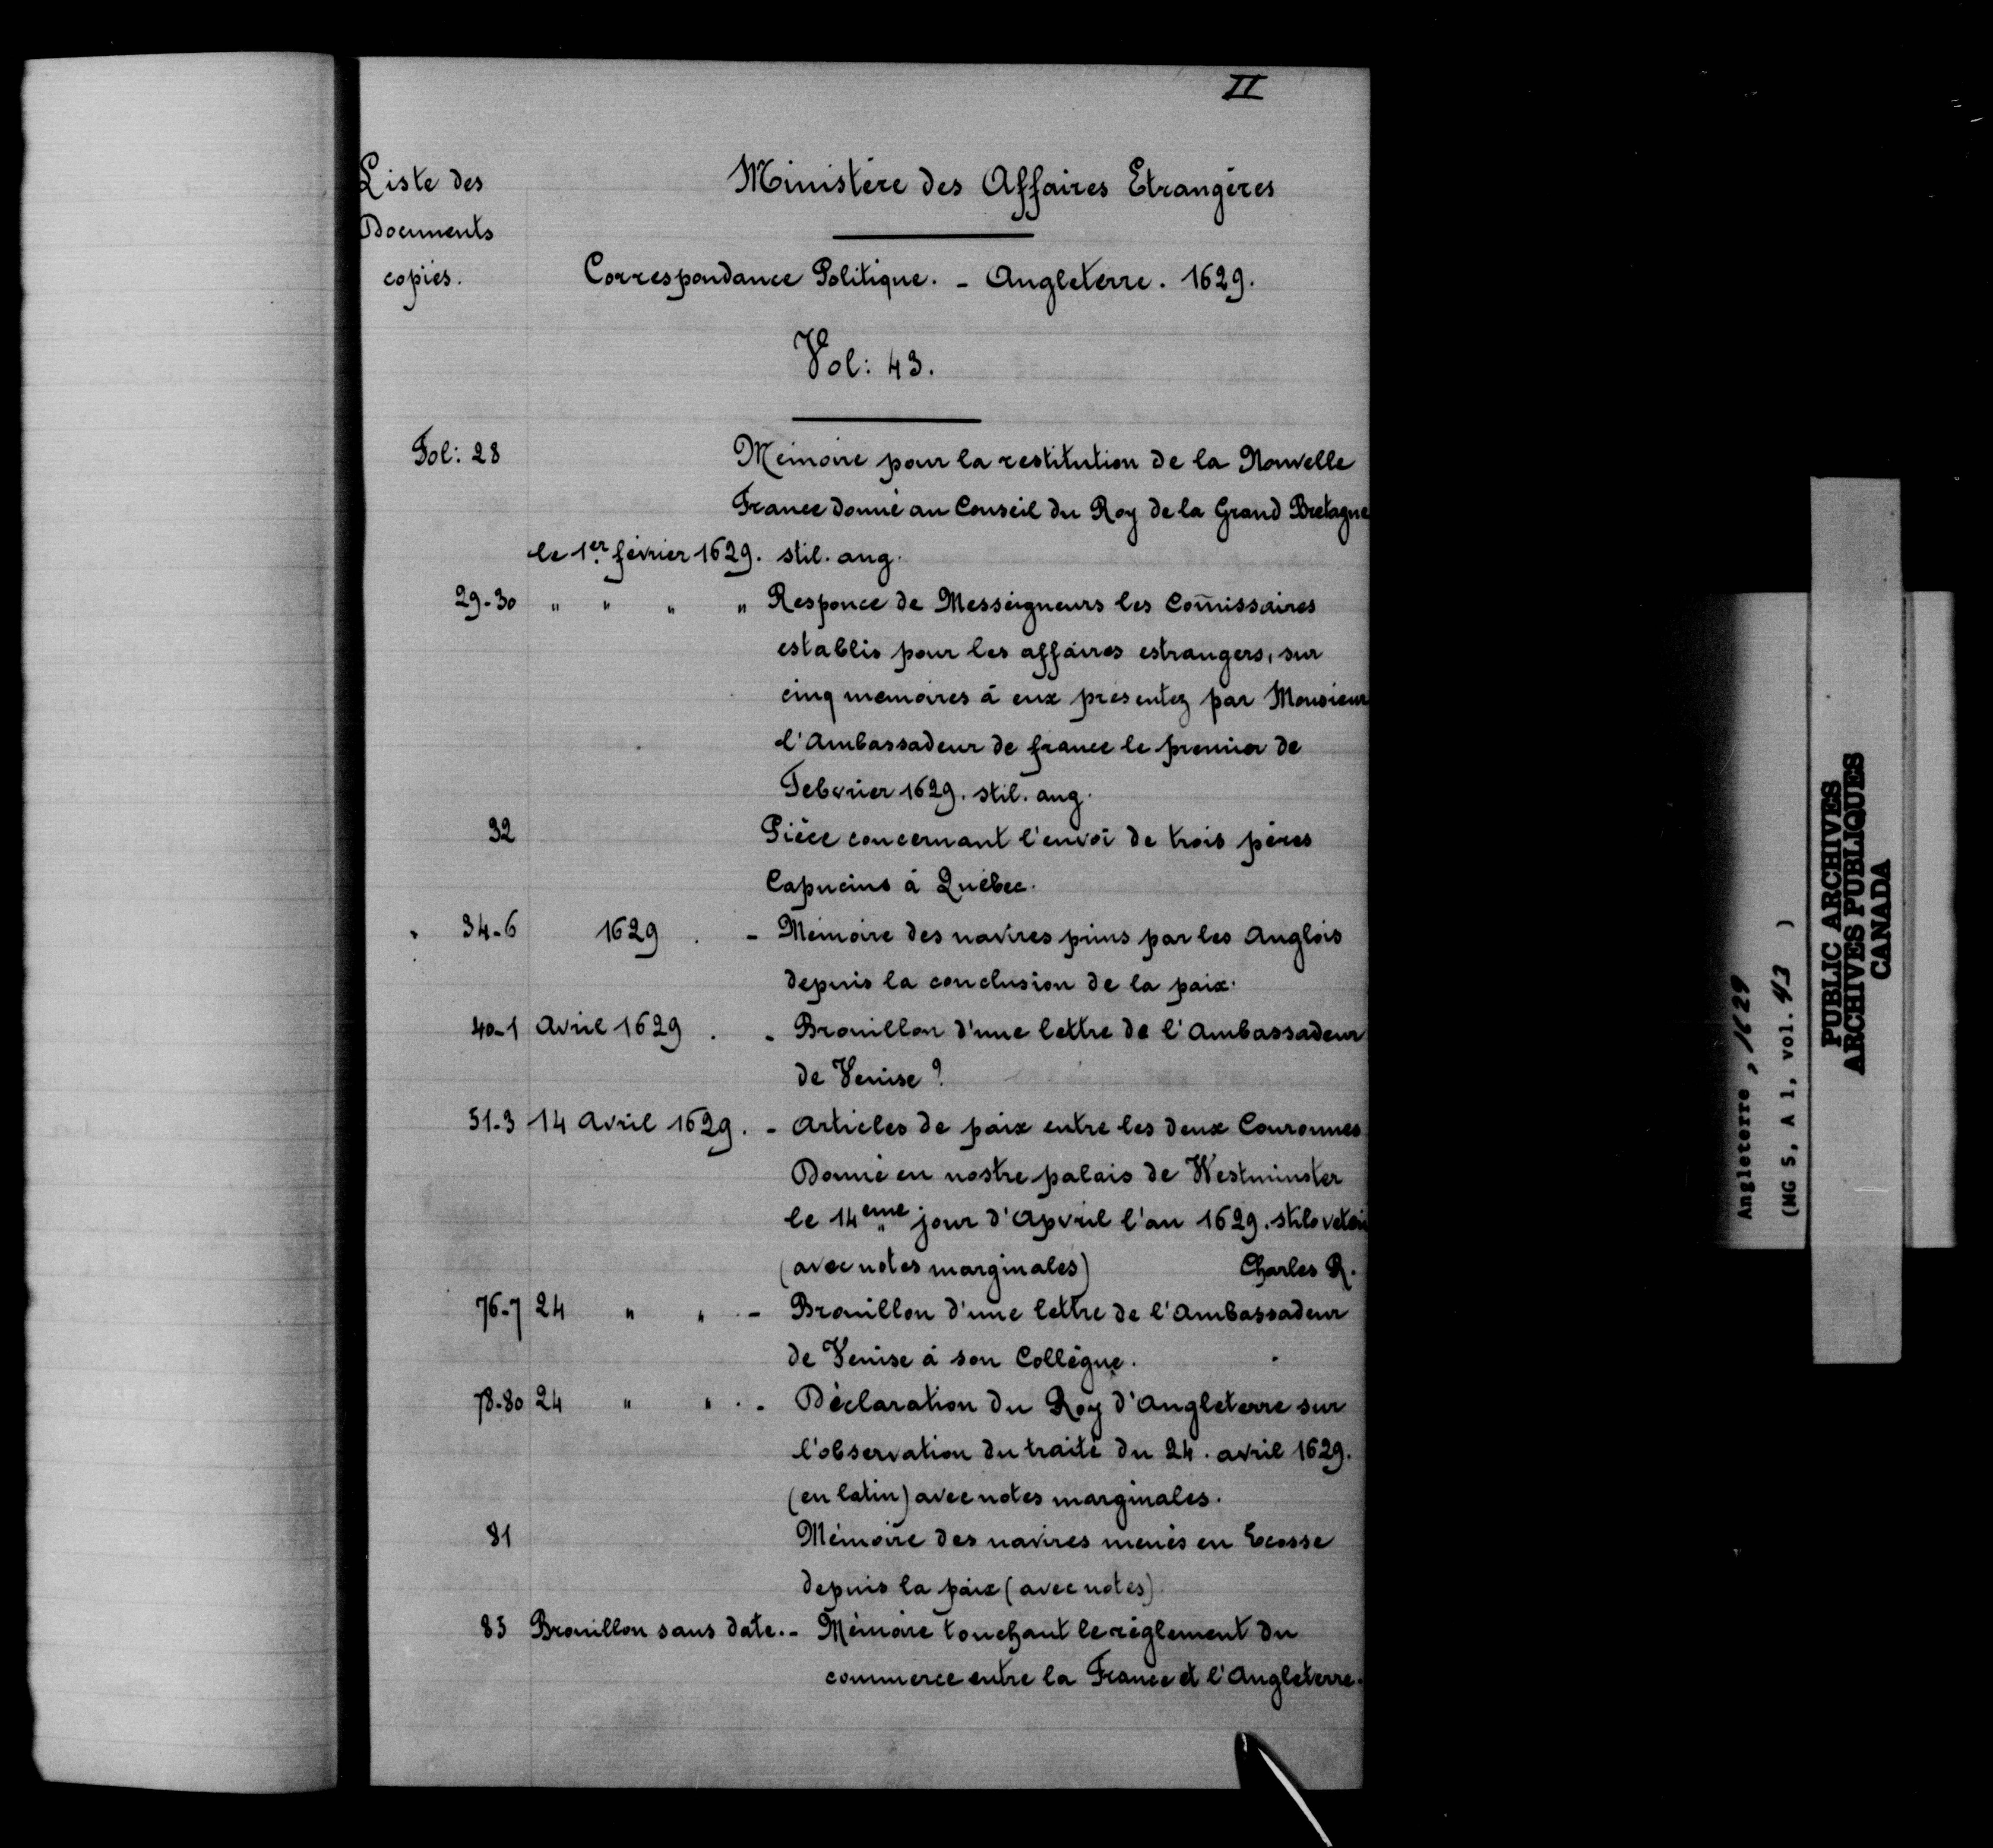 II
Liste des
Documents
copiés.
Ministère des Affaires Etrangères
Correspondance Politique. - Angleterre. 1629.
Vol: 43.
Fol: 28 Mémoire pour la restitution de la Nouvelle
France donné au Conseil du Roy de la Grand Bretagne
le 1er février 1629. stil. ang.
29-30 " " " " Responce de Messeigneurs les Com̄issaires
establis pour les affaires estrangers, sur
cinq memoires à eux presentez par Monsieur
l'Ambassadeur de france le premier de
Febvrier 1629. stil. ang.
32 Pièce concernant l'envoi de trois pères
Capucins à Québec.
34-6 1629 . - Mémoire des navires prins par les Anglois
depuis la conclusion de la paix.
40-1 Avril 1629 . - Brouillon d'une lettre de l'Ambassadeur
de Venise?
51-3 14 Avril 1629. - Articles de paix entre les deux Couronnes
Donné en nostre palais de Westminster
le 14eme jour d'Apvril l'an 1629. stilo
(avec notes marginales) Charles R.
76-7 24 " " - Brouillon d'une lettre de l'Ambassadeur
de Venise à son Collègue.
78-80 24 " " . - Déclaration du Roy d'Angleterre sur
l'observation du traité du 24. avril 1629.
(en latin) avec notes marginales.
81 Mémoire des navires menés en Ecosse
depuis la paix (avec notes)
85 Brouillon sans date. - Mémoire touchant le réglement du
commerce entre la France et l'Angleterre.
Angleterre, 1629
(MG 5, A 1, vol. 43 )
PUBLIC ARCHIVES
ARCHIVES PUBLIQUES
CANADA